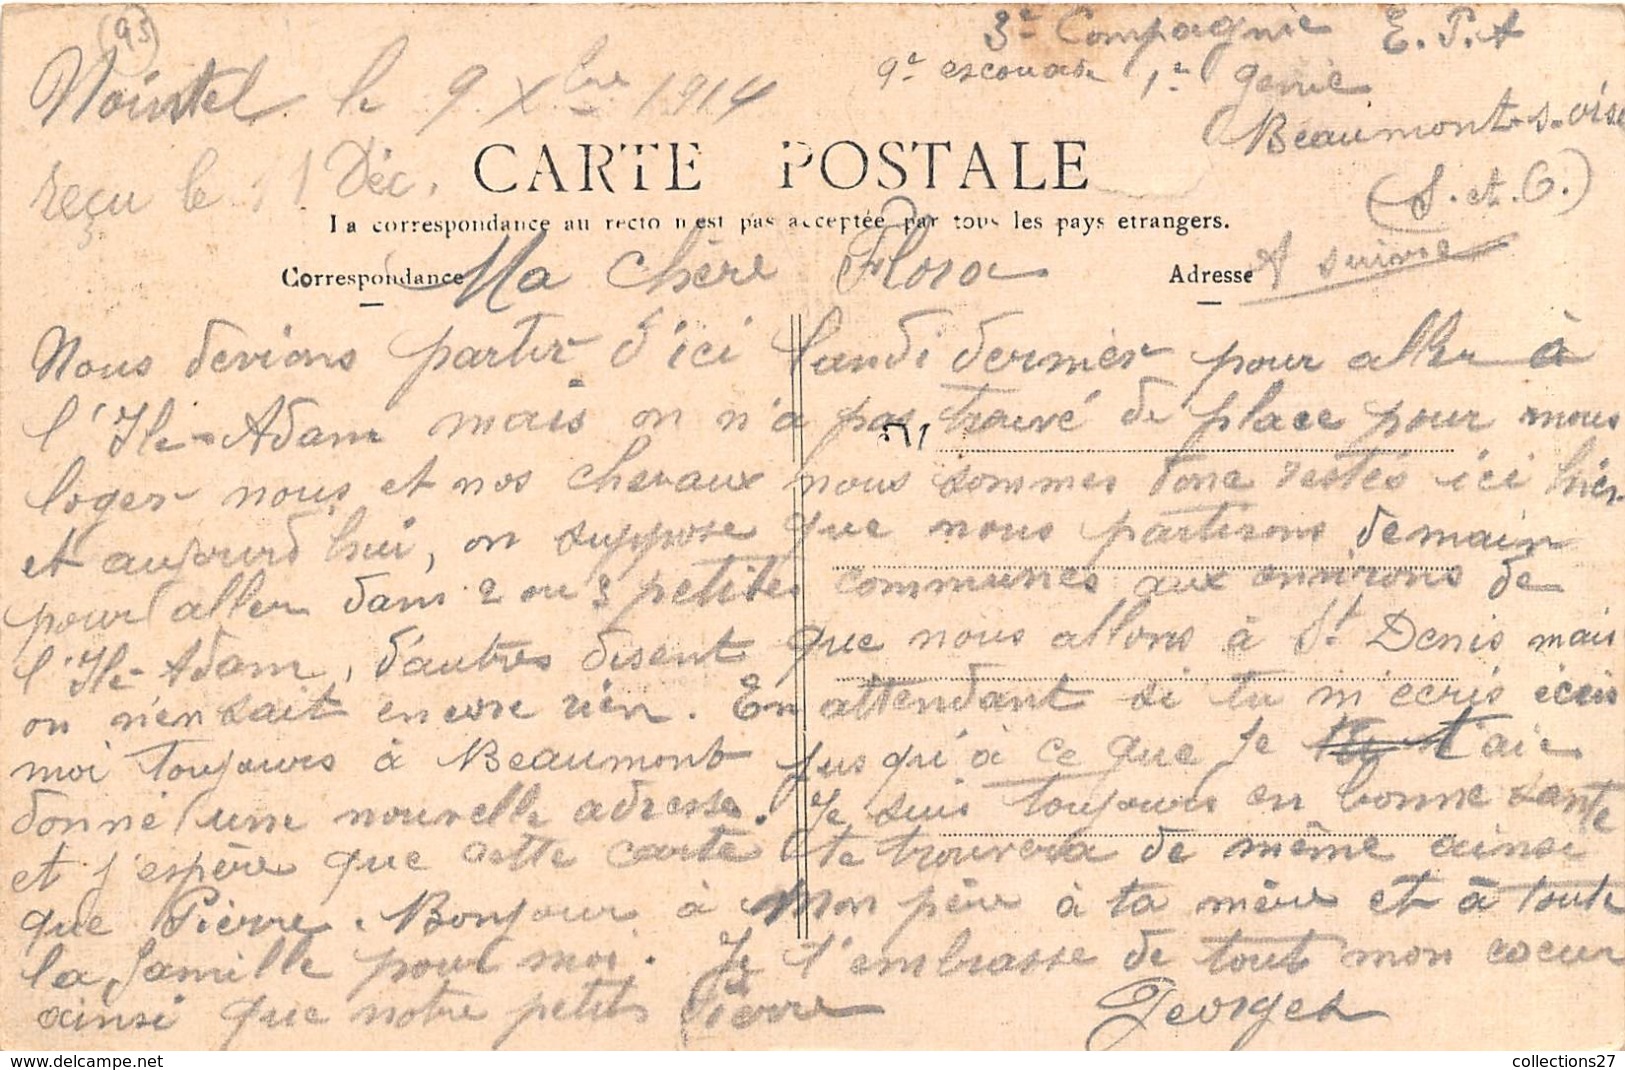 (95)
3e Compagnie E. P. A
Nointel le 9 Xbre 1914
9e escouade 1er genie
Beaumont s. oise
reçu le 11 Déc.
CARTE POSTALE
(S. et. O.)
La correspondance au recto n'est pas acceptée par tous les pays etrangers.
Correspondance
Ma chère Flora
Adresse
A suivre
Nous devions partir d'ici lundi dernier pour aller à
l'Ile-Adam mais on n'a pas trouvé de place pour nous
loger nous et nos chevaux nous sommes donc restés ici hier
et aujourd'hui, on suppose que nous partirons demain
pour aller dans 2 ou 3 petites communes aux environs de
l'Ile-Adam, d'autres disent que nous allons à St Denis mais
on n'en sait encore rien. En attendant si tu m'ecris ecris
moi toujours à Beaumont jusqu'à ce que je t'aie
donné une nouvelle adresse. Je suis toujours en bonne santé
et j'espère que cette carte te trouvera de même ainsi
que Pierre. Bonjour à Mon père à ta mère et à toute
la famille pour moi. Je t'embrasse de tout mon coeur
ainsi que notre petit Pierre
Georges
collections27